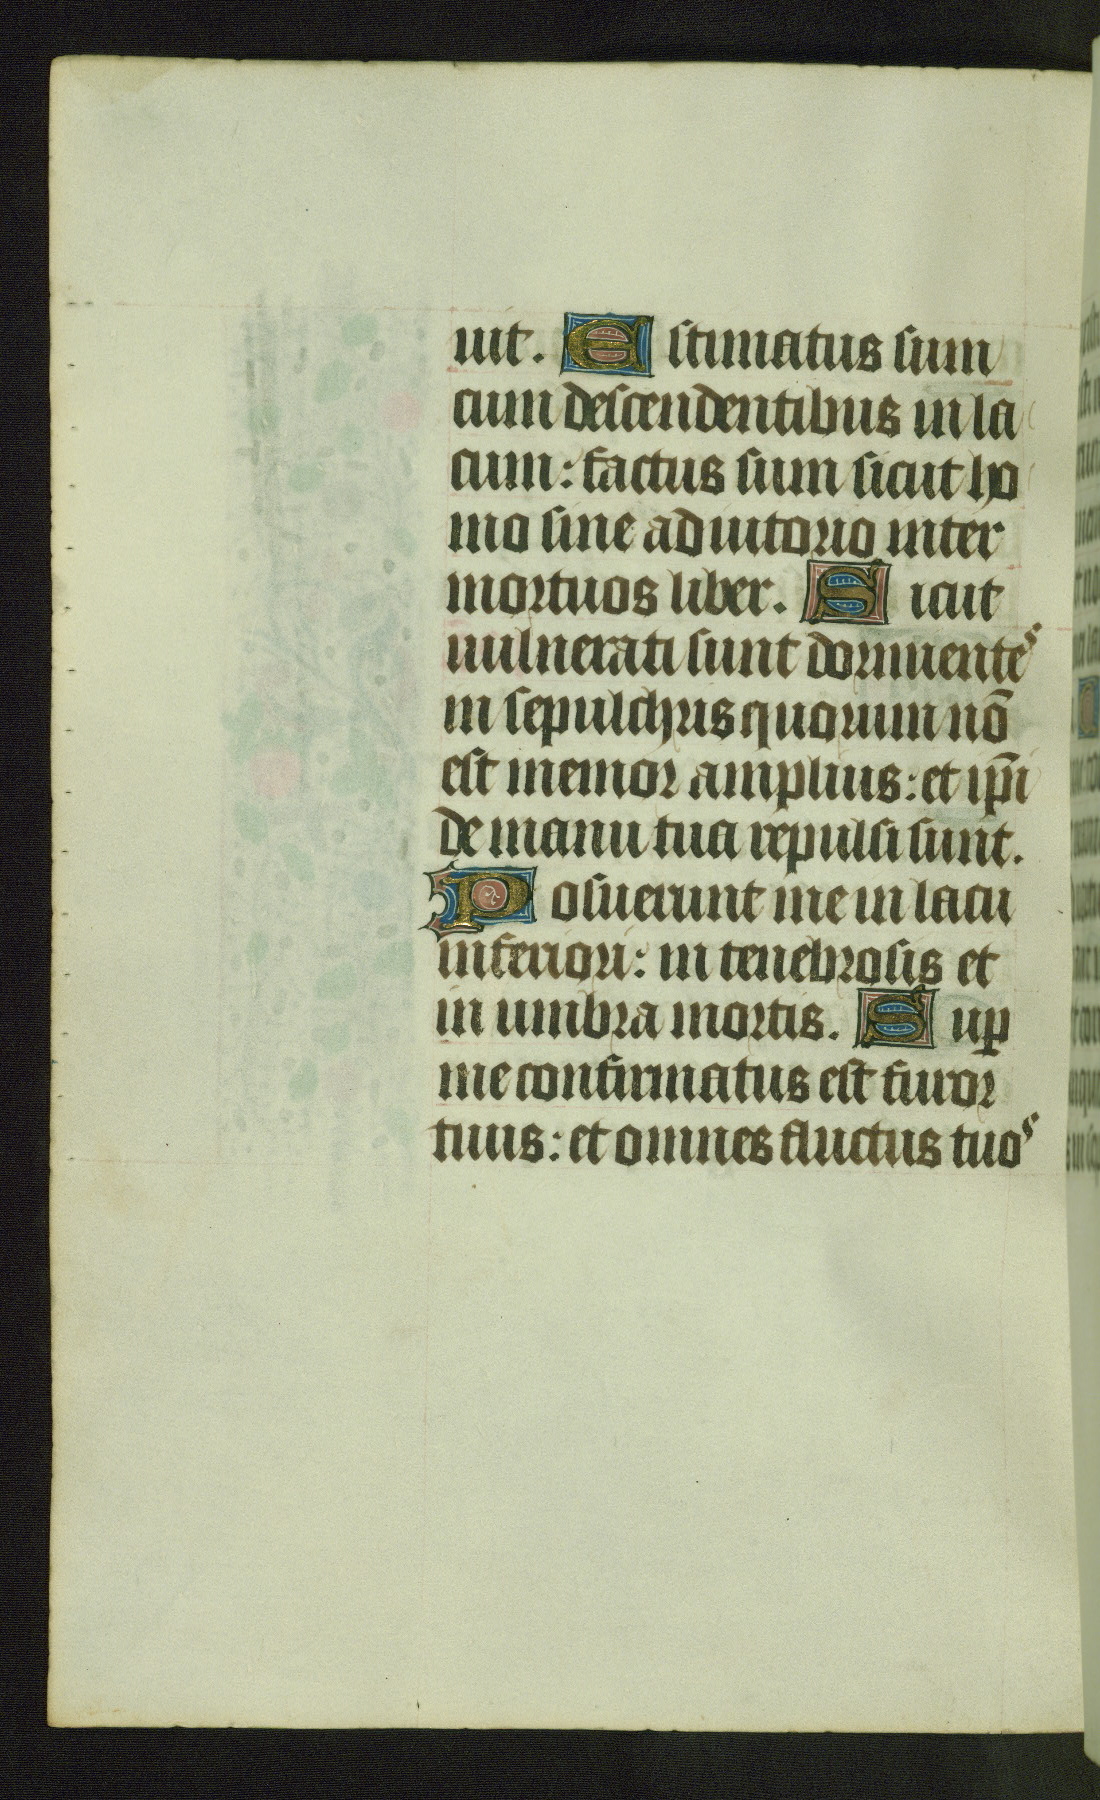 uit. Estimatus sum
cum descendentibus in la
cum: factus sum sicut ho
mo sine adiutorio inter
mortuos liber. Sicut
uulnerati sunt dormientes
in sepulchris quorum nō
est memor amplius: et ip̄i
de manu tua repulsi sunt.
Posuerunt me in lacu
inferiori: in tenebrosis et
in umbra mortis. Suꝑ
me confirmatus est furor
tuus: et omnes fluctus tuos